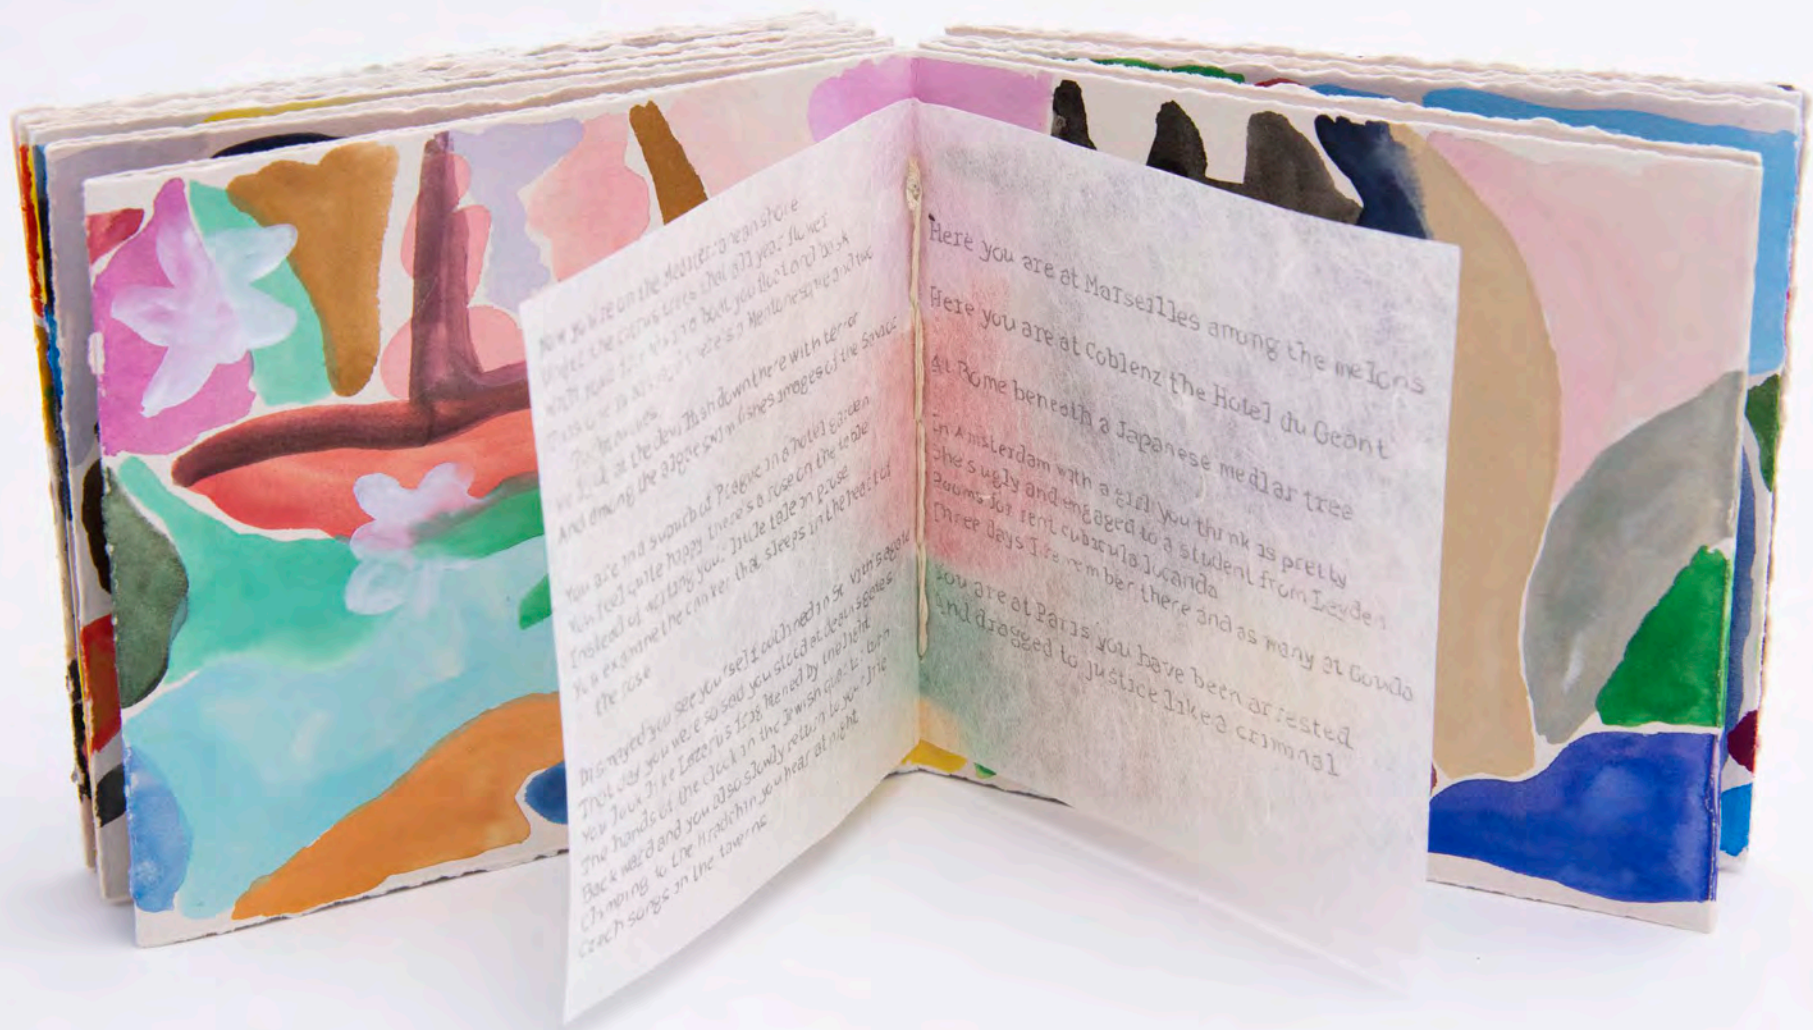 Now you're on the Mediterranean shore
under the citrus trees that all year flower
with some
And among the algae swim fishes images of the Savior
You are in a suburb of Prague in a hotel garden
You feel quite happy there's a rose on the table
Instead of writing your little tale in prose
You examine the canker that sleeps in the heart of
the rose
Dismayed you see yourself outlined in St Vitus's agate
That day you were so sad you stood at death's gates
You look like Lazarus frightened by the light
The hands of the clock in the Jewish quarter turn
Backward and you also slowly return to your life
Climbing to the Hradchin you hear at night
Czech songs in the taverns
Here you are at Marseilles among the melons
Here you are at Coblenz the Hotel du Geant
At Rome beneath a Japanese medlar tree
In Amsterdam with a girl you think is pretty
She's ugly and engaged to a student from Leyden
Rooms for rent cubicula locanda
Three days I remember there and as many at Gouda
You are at Paris you have been arrested
And dragged to justice like a criminal